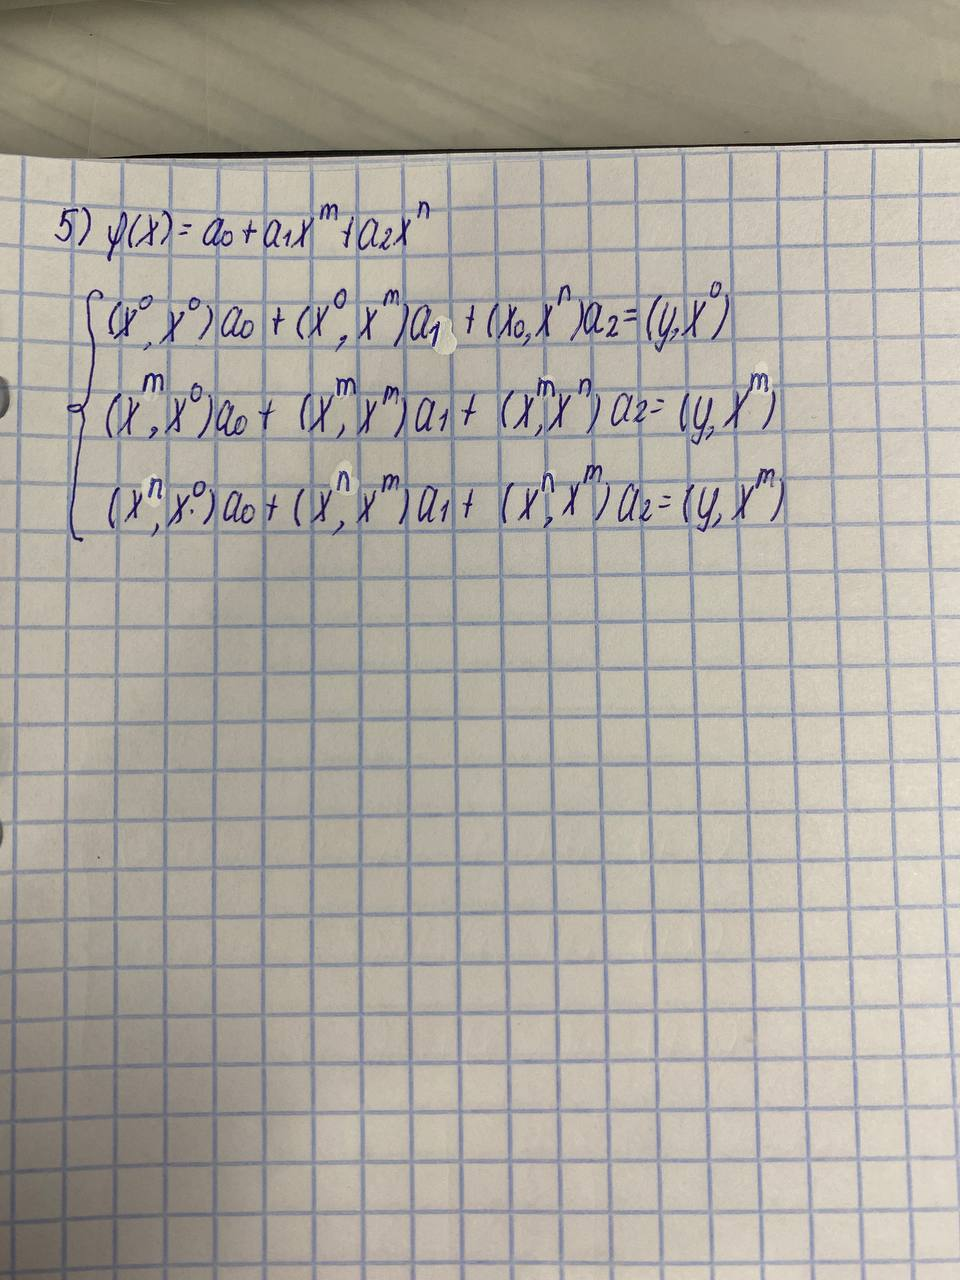 5) φ(x) = a₀ + a₁xᵐ + a₂xⁿ
(x⁰, x⁰)a₀ + (x⁰, xᵐ)a₁ + (x₀, xⁿ)a₂ = (y, x⁰)
(xᵐ, x⁰)a₀ + (xᵐ, xᵐ)a₁ + (xᵐ, xⁿ)a₂ = (y, xᵐ)
(xⁿ, x⁰)a₀ + (xⁿ, xᵐ)a₁ + (xⁿ, xᵐ)a₂ = (y, xᵐ)